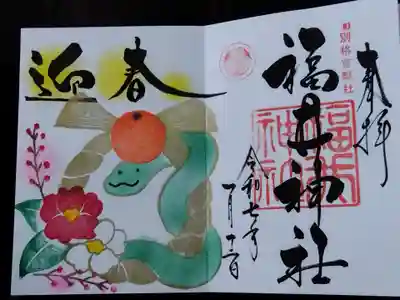 奉拝
別格官幣社
福井神社
福井
神社
令和七年
一月十二日
迎春